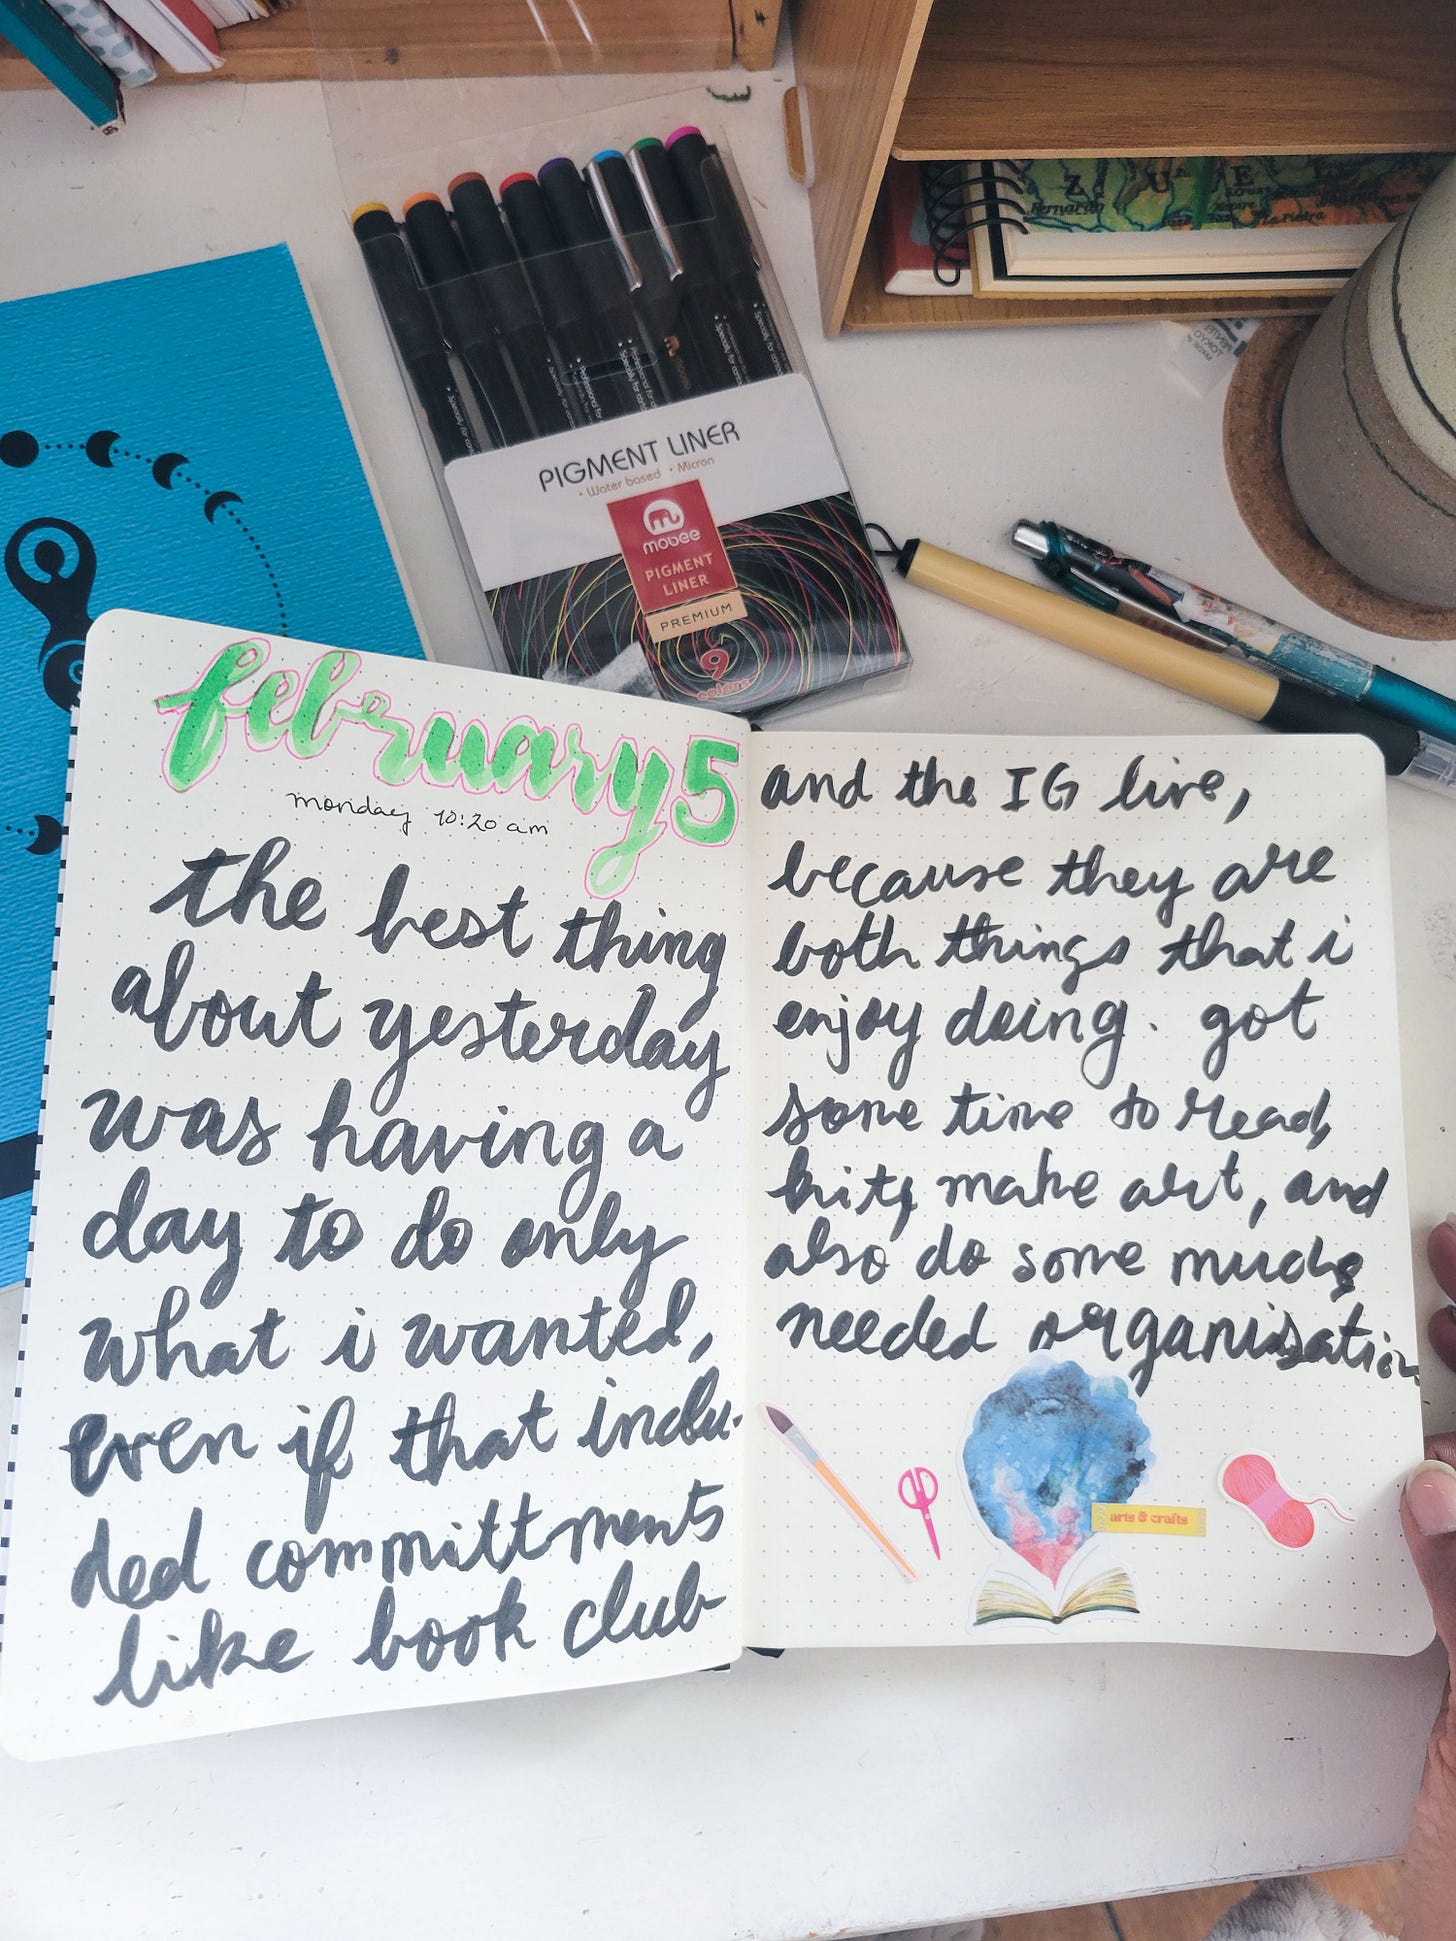 Z U E
Bernardo
La Pietra
PIGMENT LINER
• Water based • Micron
mobee
PIGMENT
LINER
PREMIUM
9
colors
february 5
monday 10:20 am
the best thing
about yesterday
was having a
day to do only
what i wanted,
even if that inclu-
ded committments
like book club
and the IG live,
because they are
both things that i
enjoy doing. got
some time to read,
knit, make art, and
also do some much
needed organization
arts & crafts